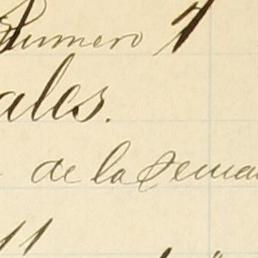 Numero 1
ales.
de la Sema
11